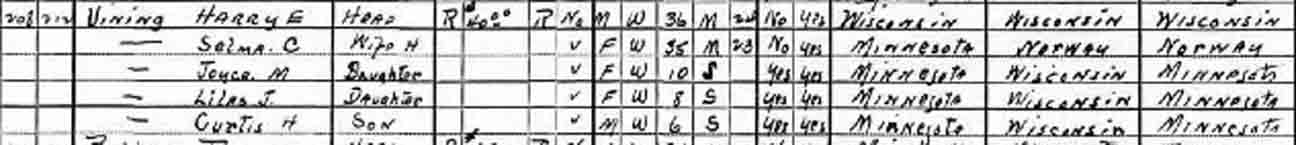 208 212 Vining Harry E Head R 40.00 R No M W 36 M 24 No yes Wisconsin Wisconsin Wisconsin
— Selma. C Wife H v F W 35 M 23 No yes Minnesota Norway Norway
— Joyce. M Daughter v F W 10 S yes yes Minnesota Wisconsin Minnesota
— Lilas J. Daughter v F W 8 S yes yes Minnesota Wisconsin Minnesota
— Curtis H Son v M W 6 S yes yes Minnesota Wisconsin Minnesota